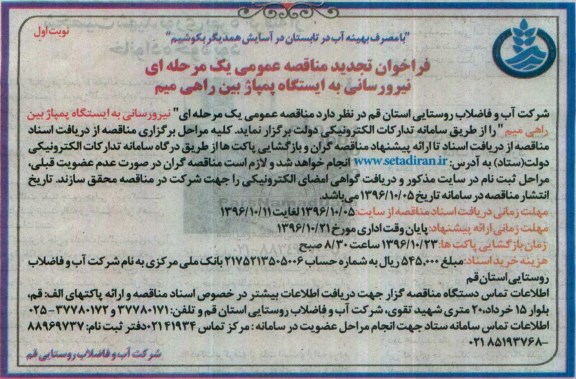 نوبت اول
"با مصرف بهینه آب در تابستان در آسایش همدیگر بکوشیم"
فراخوان تجدید مناقصه عمومی یک مرحله ای
نیرورسانی به ایستگاه پمپاژ بین راهی میم
شرکت آب و فاضلاب روستایی استان قم در نظر دارد مناقصه عمومی یک مرحله ای "نیرورسانی به ایستگاه پمپاژ بین
راهی میم" را از طریق سامانه تدارکات الکترونیکی دولت برگزار نماید. کلیه مراحل برگزاری مناقصه از دریافت اسناد
مناقصه از دریافت اسناد تا ارائه پیشنهاد مناقصه گران و بازگشایی پاکت ها از طریق درگاه سامانه تدارکات الکترونیکی
دولت(ستاد) به آدرس: www.setadiran.ir انجام خواهد شد و لازم است مناقصه گران در صورت عدم عضویت قبلی،
مراحل ثبت نام در سایت مذکور و دریافت گواهی امضای الکترونیکی را جهت شرکت در مناقصه محقق سازند. تاریخ
انتشار مناقصه در سامانه تاریخ ۱۳۹۶/۱۰/۰۵ می باشد.
مهلت زمانی دریافت اسناد مناقصه از سایت: ۱۳۹۶/۱۰/۰۵ لغایت ۱۳۹۶/۱۰/۱۱
مهلت زمانی ارائه پیشنهاد: پایان وقت اداری مورخ ۱۳۹۶/۱۰/۲۱
زمان بازگشایی پاکت ها: ۱۳۹۶/۱۰/۲۳ ساعت ۸/۳۰ صبح
هزینه خرید اسناد: مبلغ ۵۴۵,۰۰۰ ریال به شماره حساب ۲۱۷۵۲۱۳۵۰۵۰۰۶ بانک ملی مرکزی به نام شرکت آب و فاضلاب
روستایی استان قم
اطلاعات تماس دستگاه مناقصه گزار جهت دریافت اطلاعات بیشتر در خصوص اسناد مناقصه و ارائه پاکتهای الف: قم،
بلوار ۱۵ خرداد، ۲۰ متری شهید تقوی، شرکت آب و فاضلاب روستایی استان قم و تلفن: ۳۷۷۸۰۱۷۱ و ۳۷۷۸۰۱۷۲ - ۰۲۵
اطلاعات تماس سامانه ستاد جهت انجام مراحل عضویت در سامانه: مرکز تماس ۰۲۱۴۱۹۳۴ دفتر ثبت نام: ۸۸۹۶۹۷۳۷
-۰۲۱۸۵۱۹۳۷۶۸
شرکت آب و فاضلاب روستایی قم